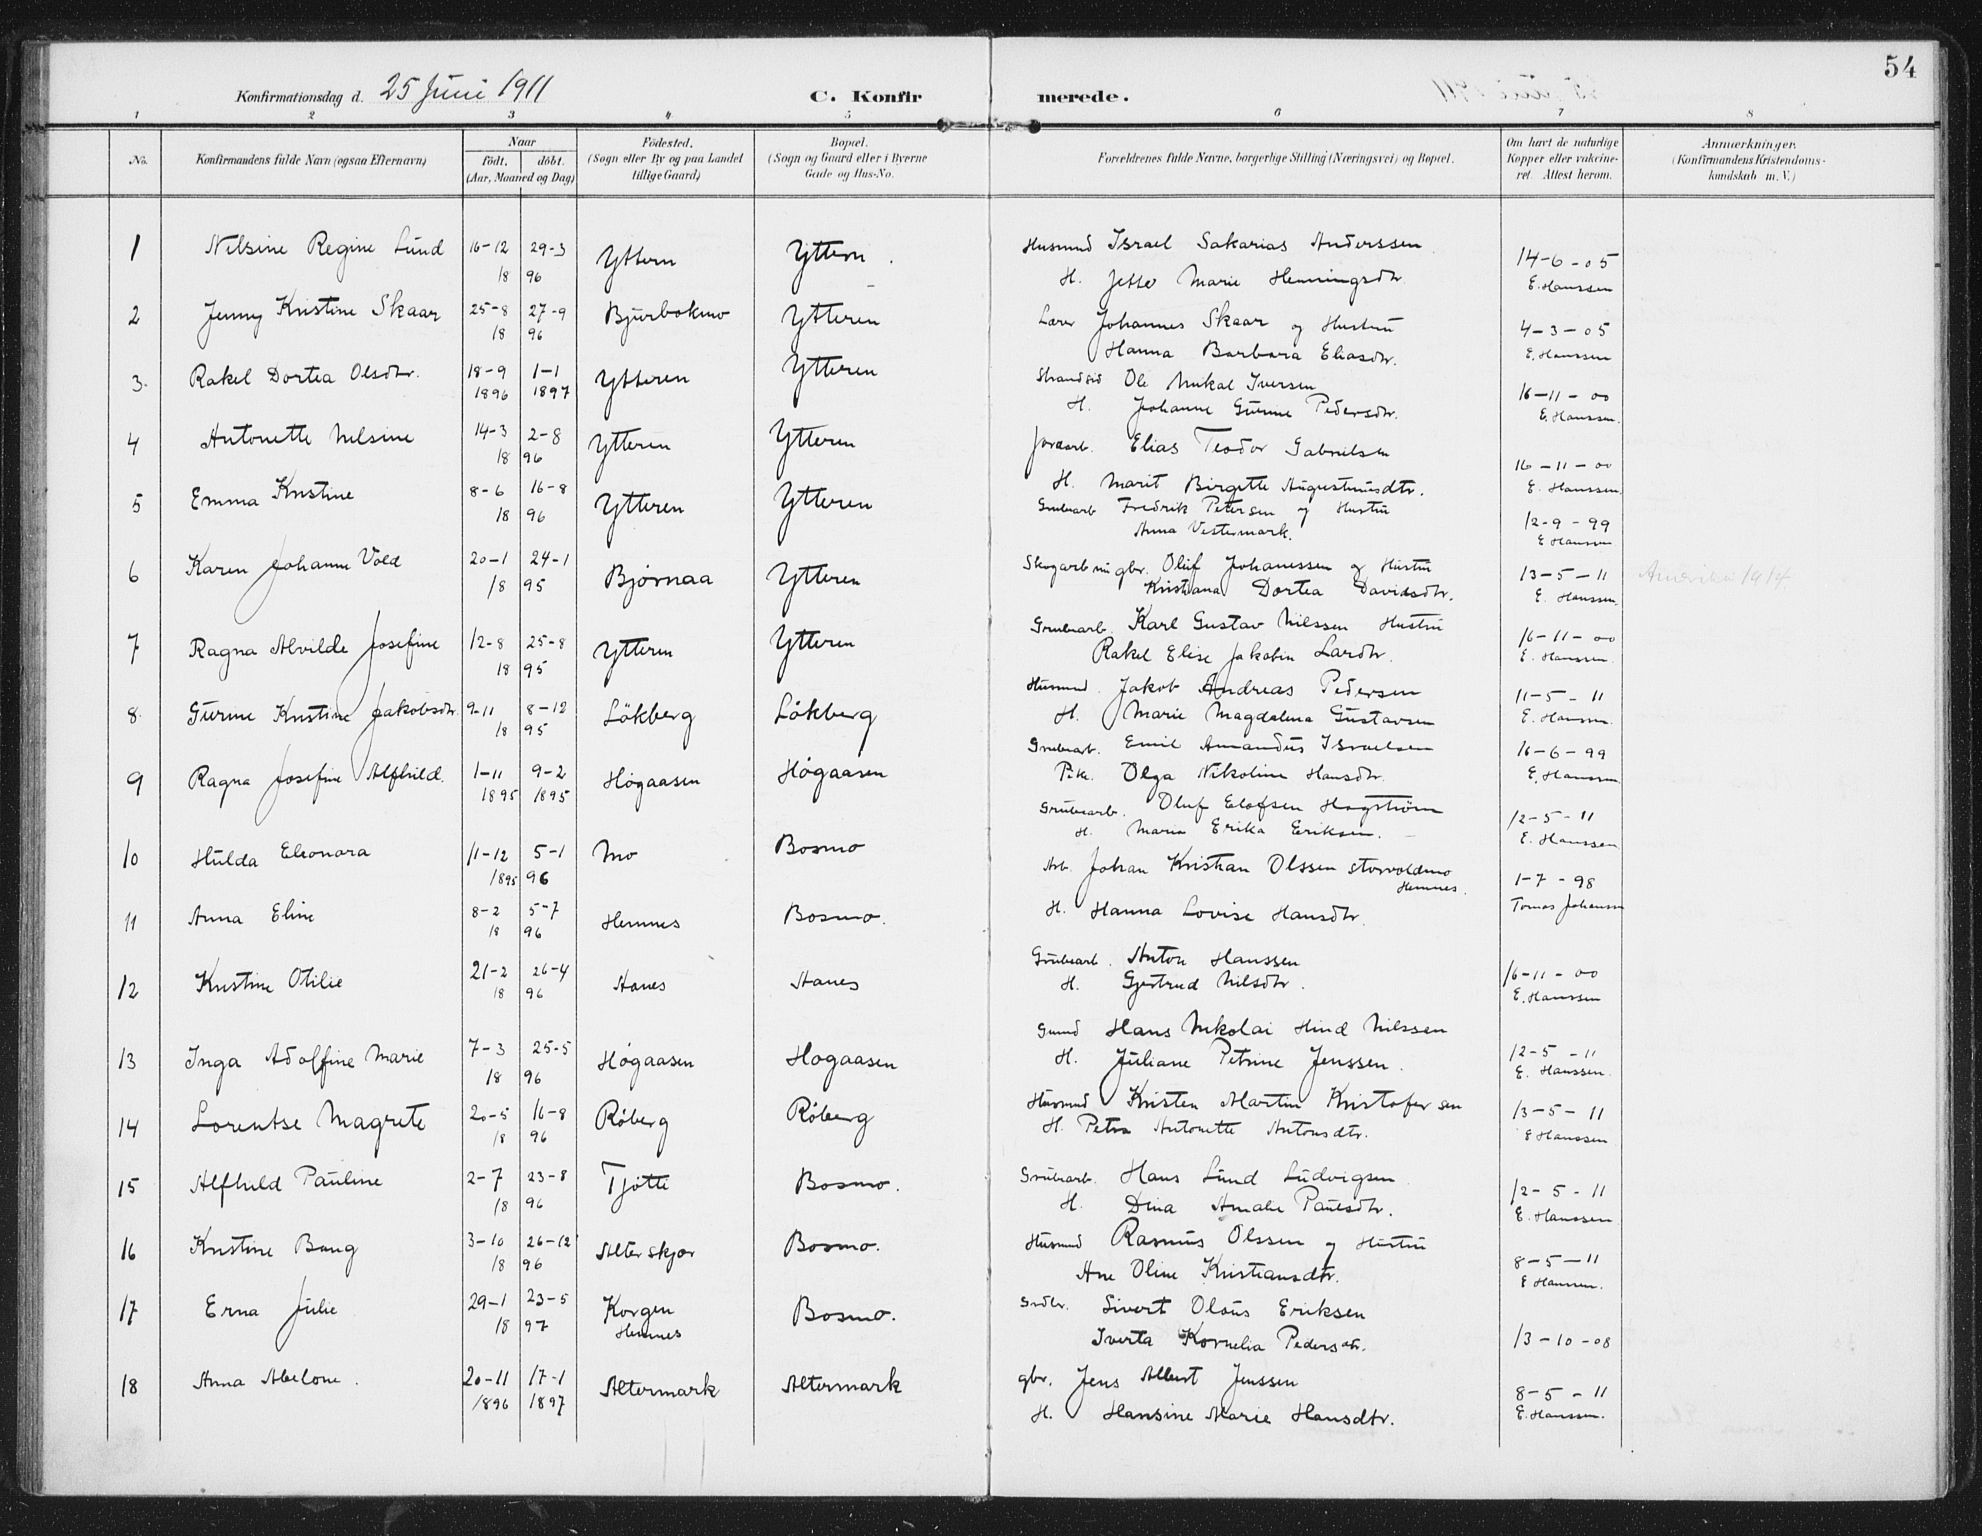 54
Konfirmationsdag d. 25 Juni 1911
C. Konfirmerede.
1 2 3 4 5 6 7 8
No. Konfirmandens fulde Navn (ogsaa Efternavn) Naar født. døbt. (Aar, Maaned og Dag) Fødested. (Sogn eller By og paa Landet tillige Gaard) Bopæl. (Sogn og Gaard eller i Byerne Gade og Hus-No. Forældrenes fulde Navne, borgerlige Stilling (Næringsvei) og Bopæl. Om havt de naturlige Kopper eller vakcineret. Attest herom. Anmærkninger. (Konfirmandens Kristendomskundskab m. V.)
1 Nilsine Regine Lund 16-12 29-3 Yttern Yttern. Husmnd Israel Sakarias Anderssen 14-6-05
18 96 H. Jette Marie Henningsdtr. E. Hanssen
2 Jenny Kristine Skaar 25-8 27-9 Bjurbækmo Ytteren Lærer Johannes Skaar og Hustru 4-3-05
18 96 Hanna Barbara Eliasdtr. E. Hanssen
3. Rakel Dortea Olsdtr. 18-9 1-1 Ytteren Ytteren Strandsid Ole Mikal Iversen 16-11-00
1896 1897 H. Johanne Gurine Pedersdtr. E. Hanssen.
4 Antonette Nilsine 14-3 2-8 Ytteren Ytteren Jordarb. Elias Teodor Gabrielsen 16-11-00
18 96 H. Marit Birgitte Augustinusdtr. E. Hanssen
5 Emma Kristine 8-6 16-8 Ytteren Ytteren Grubearb Fredrik Petersen og Hustru 12-9-99
18 96 Anna Vestermark. E Hanssen
6 Karen Johanne Vold 20-1 24-1 Bjørnaa Ytteren Skogarb gbr. Oluf Johanessen og Hustru 13-5-11 Amerika 1914.
18 95 Kristiana Dortea Davidsdtr. E. Hanssen.
7 Ragna Alvilde Josefine 12-8 25-8 Ytteren Ytteren Grubearb. Karl Gustav Nilssen Hustru 16-11-00
18 95 Rakel Elise Jakobin Larsdtr. E. Hanssen.
8. Gurine Kristine Jakobsdtr. 9-11 8-12 Løkberg Løkberg Husmnd. Jakob Andreas Pedersen 11-5-11
18 95 H. Marie Magdalena Gustavsen E. Hanssen.
9 Ragna Josefine Alfhild. 1-11 9-2 Høgaasen Høgaasen Grubearb. Emil Amandus Israelsen 16-6-99
1895 1895 Pike. Olga Nikoline Hansdtr. E. Hanssen
10 Hulda Eleonora 11-12 5-1 Mo Bosmo Grubearb. Oluf Elofsen Hagstrøm 12-5-11
1895 96 H. Maria Erika Eriksen. E. Hanssen
11 Anna Eline 8-2 5-7 Hemnes Bosmo. Arb. Johan Kristian Olssen Storvoldmo Hemnes. 1-7-98
18 96 H. Hanna Lovise Hansdtr. Tomas Johansen
12 Kristine Otilie 21-2 26-4 Aanes Aanes Grubearb. Anton Hanssen 16-11-00
18 96 H. Gjertrud Nilsdtr. E. Hanssen
13 Inga Adolfine Marie 7-3 25-5 Høgaasen Høgaasen Gmnd Hans Nikolai Hind Nilssen 12-5-11
18 96 H. Juliane Petrine Jenssen. E. Hanssen.
14 Lorentse Magrete 20-5 16-8 Røberg Røberg Husmnd Kristen Martin Kristofersen 13-5-11
18 96 H. Petra Antonette Antonsdtr. E Hanssen
15 Alfhild Pauline 2-7 23-8 Tjøtte Bosmo. Grubearb. Hans Lund Ludvigsen 12-5-11
18 96 H. Dina Amalie Paulsdtr. E. Hanssen
16 Kristine Bang 3-10 26-12 Alterskjær Bosmo. Husmnd Rasmus Olssen og Hustru 8-5-11
18 96 Ane Oline Kristiansdtr. E Hanssen.
17 Erna Julie 29-1 23-5 Korgen Bosmo. Grdbr. Sivert Olaus Eriksen
18 97 Hemnes Iverta Kornelia Pedersdtr. 13-10-08
18 Anna Abelone. 20-11 17-1 Altermark Altermark gbr. Jens Albert Jenssen 8-5-11
1896 1897 H. Hansine Marie Hansdtr. E. Hanssen.